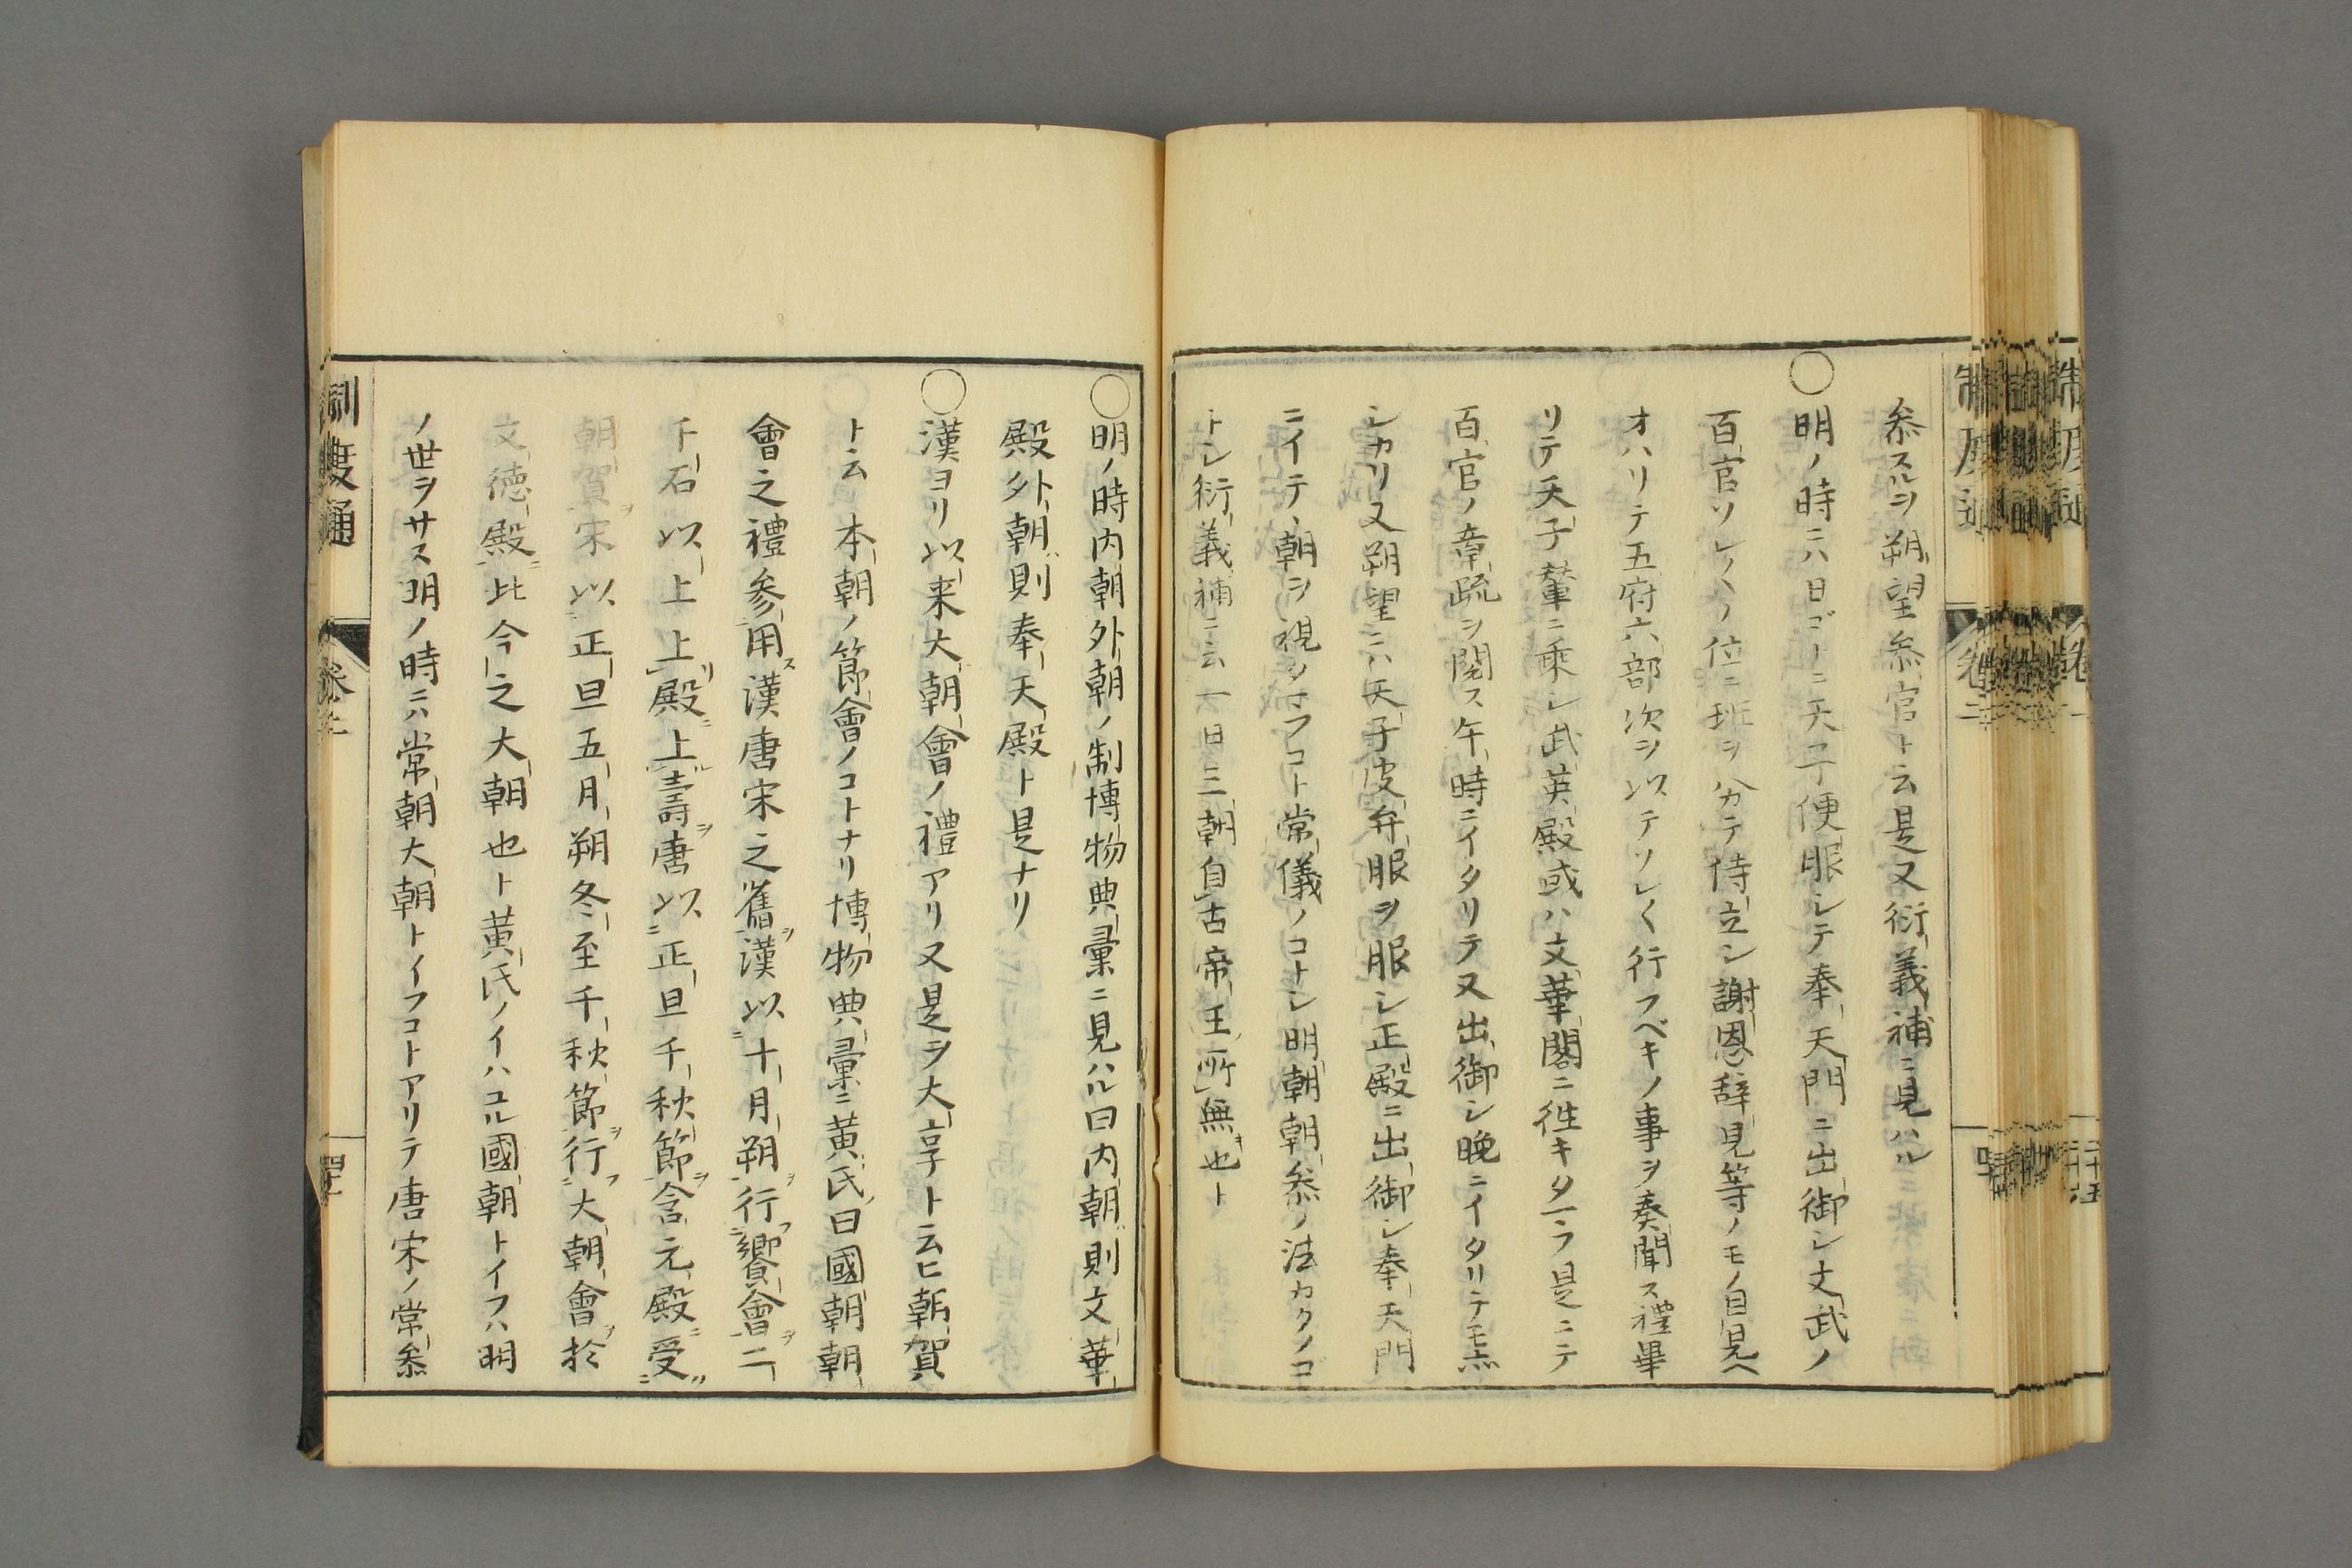 参スルヲ朔望参官ト云是又衍義補ニ見ハル
○明ノ時ニハ日ゴトニ天子便服シテ奉天門ニ出御シ文武ノ
百官ソレ〱ノ位ニ班ヲ分テ侍立シ謝恩辞見等ノモノ自見ヘ
オハリテ五府六部次ヲ以テソレ〱行フベキノ事ヲ奏聞ス禮畢
リテ天子輦ニ乗シ武英殿或ハ文華閣ニ徃キタマフ是ニテ
百官ノ章疏ヲ閲ス午時ニイタリテ又出御シ晩ニイタリテモ亦
シカリ又朔望ニハ天子皮弁服ヲ服シ正殿ニ出御シ奉天門
ニイテヽ朝ヲ視タマフコト常儀ノコトシ明朝朝参ノ法カクノゴ
トシ衍義補ニ云一日三朝自古帝王所無也ト
○明ノ時内朝外朝ノ制博物典彙ニ見ハル曰内朝則文華
殿外朝則奉天殿ト是ナリ
○漢ヨリ以来大朝會ノ禮アリ又是ヲ大享ト云ヒ朝賀
ト云 本朝ノ節會ノコトナリ博物典彙ニ黄氏曰國朝朝
會之禮参用漢唐宋之舊漢以十月朔行饗會二
千石以上上殿上壽唐以正旦千秋節含元殿受
朝賀宋以正旦五月朔冬至千秋節行大朝會於
文德殿比今之大朝也ト黄氏ノイハユル國朝トイフハ明
ノ世ヲサス明ノ時ニハ常朝大朝トイフコトアリテ唐宋ノ常参
制度通
巻二